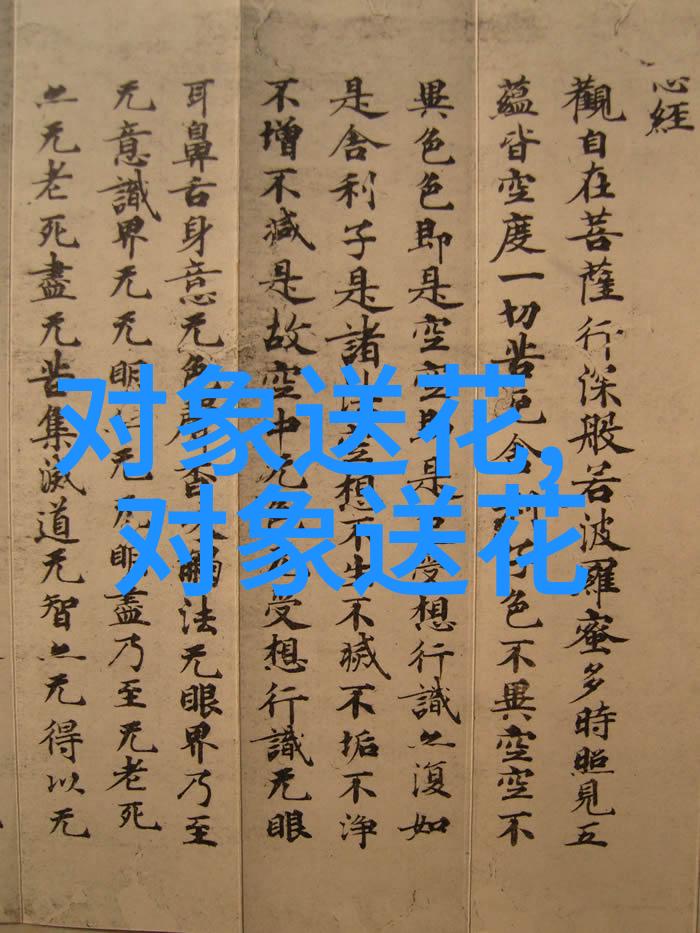 心經
觀自在菩薩行深般若波羅蜜多時照見五
蘊皆空度一切苦厄舍利子色不異空空不
異色色即是空空即是色受想行識亦復如
是舍利子是諸法空想不生不滅不垢不淨
不增不減是故空中无色无受想行識无眼
耳鼻舌身意无色聲香味觸法无眼界乃至
无意識界无无明亦无无明盡乃至无老死
亦无老死盡无苦集滅道无智亦无得以无
对象送花,
对象送花